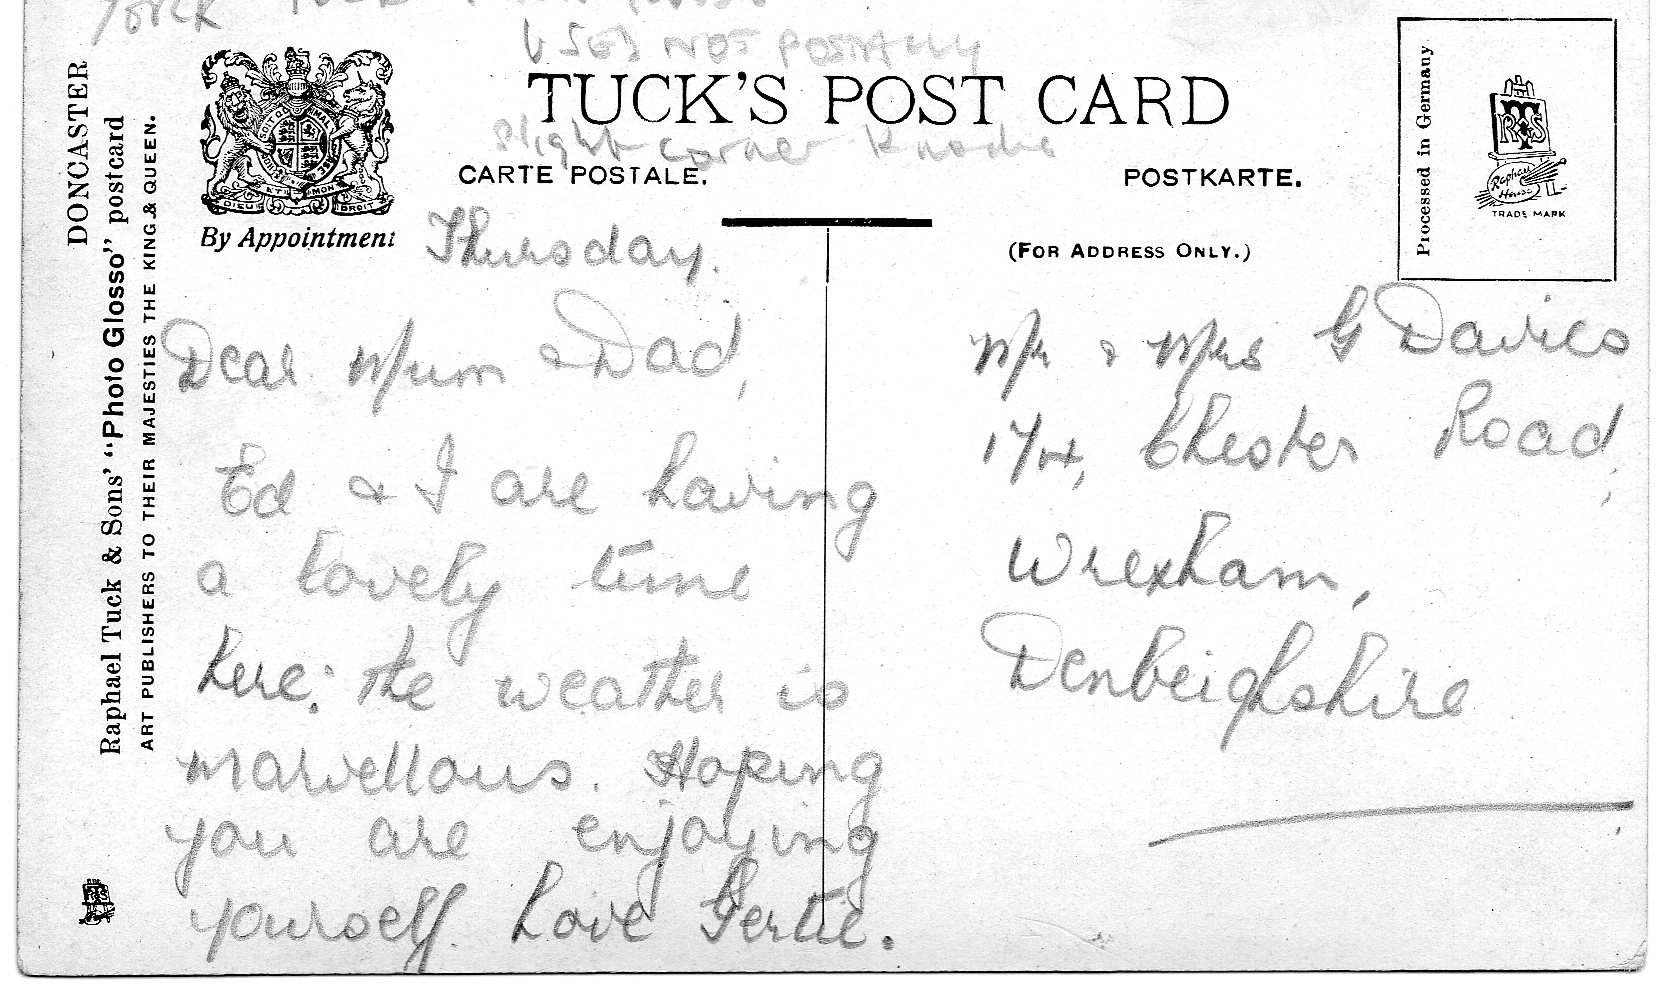 YORK TUCK
USED NOT POSTALLY
TUCK'S POST CARD
slight corner knocks
CARTE POSTALE.
POSTKARTE.
(FOR ADDRESS ONLY.)
By Appointment
DIEU ET MON DROIT
Processed in Germany
Raphael House
TRADE MARK
DONCASTER
Raphael Tuck & Sons' "Photo Glosso" postcard
ART PUBLISHERS TO THEIR MAJESTIES THE KING & QUEEN.
Thursday.
Dear Mum & Dad,
Ed & I are having
a lovely time
here: the weather is
marvellous. Hoping
you are enjoying
yourself. Love Gertie.
Mr & Mrs G Davies
174, Chester Road,
Wrexham,
Denbeighshire